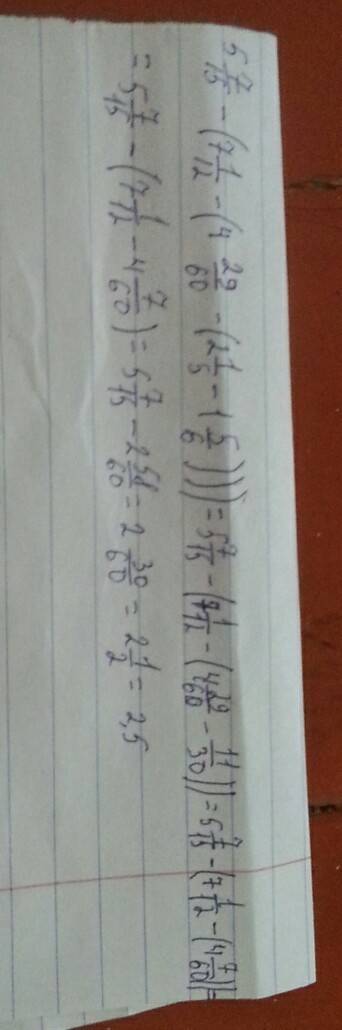 5 7/15 - (7 1/12 - (4 29/60 - (2 1/5 - 1 5/6)))) = 5 7/15 - (7 1/12 - (4 29/60 - 11/30)) = 5 7/15 - (7 1/12 - (4 7/60) =
= 5 7/15 - (7 1/12 - 4 7/60) = 5 7/15 - 2 58/60 = 2 30/60 = 2 1/2 = 2,5